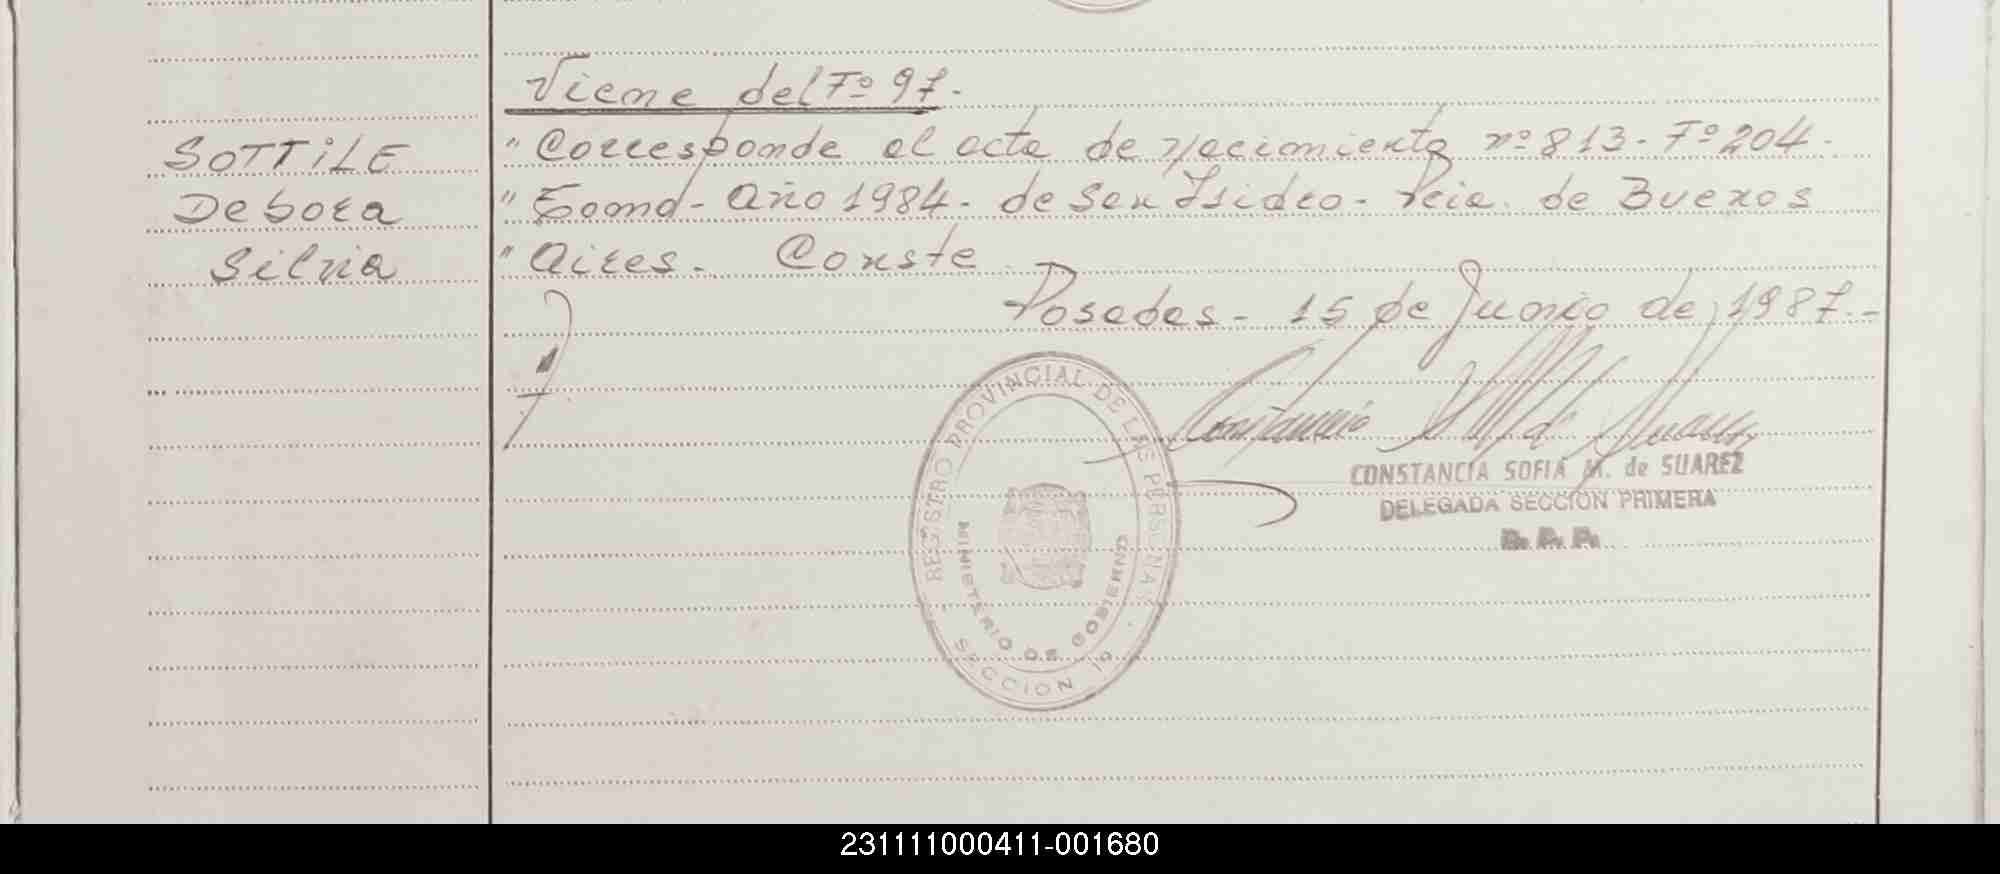 Viene del Fº 97.
SOTTILE
Debora
Silvia
"Corresponde al acta de nacimiento nº 813 - Fº 204.
"Tomo - Año 1984 - de San Isidro - Pcia. de Buenos
"Aires. Conste
Posadas - 15 de Junio de 1987.-
REGISTRO PROVINCIAL DE LAS PERSONAS
MINISTERIO DE GOBIERNO
SECCION 1º
CONSTANCIA SOFIA M. de SUAREZ
DELEGADA SECCION PRIMERA
R. P. P.
231111000411-001680